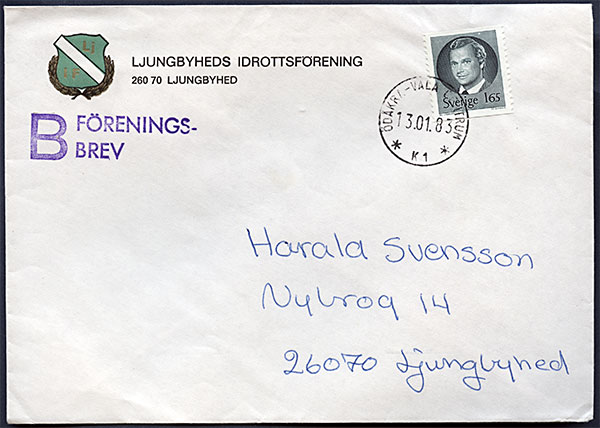 Lj
IF
LJUNGBYHEDS IDROTTSFÖRENING
260 70 LJUNGBYHED
Sverige 165
ÖDÅKRA-VÄLA CENTRUM
13.01.83
* K1 *
B FÖRENINGS-
BREV
Harald Svensson
Nybrog 14
26070 Ljungbyhed